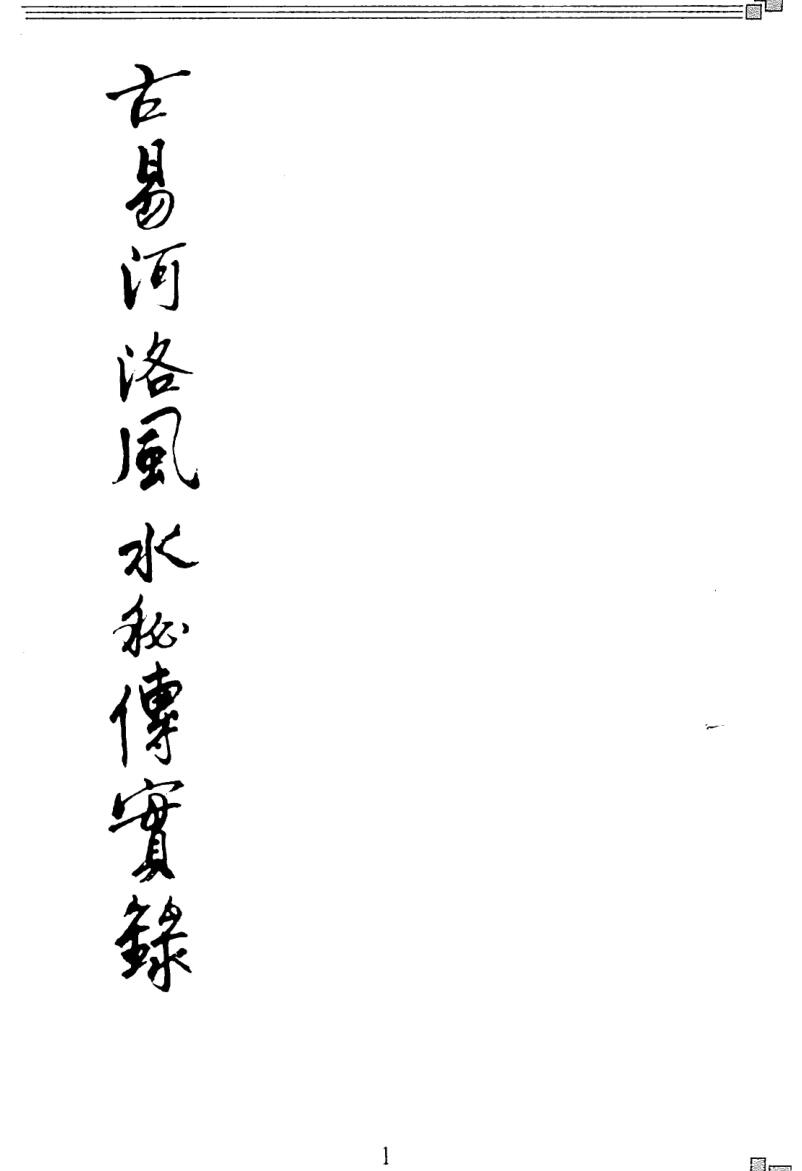 古易河洛風水秘傳實錄
1